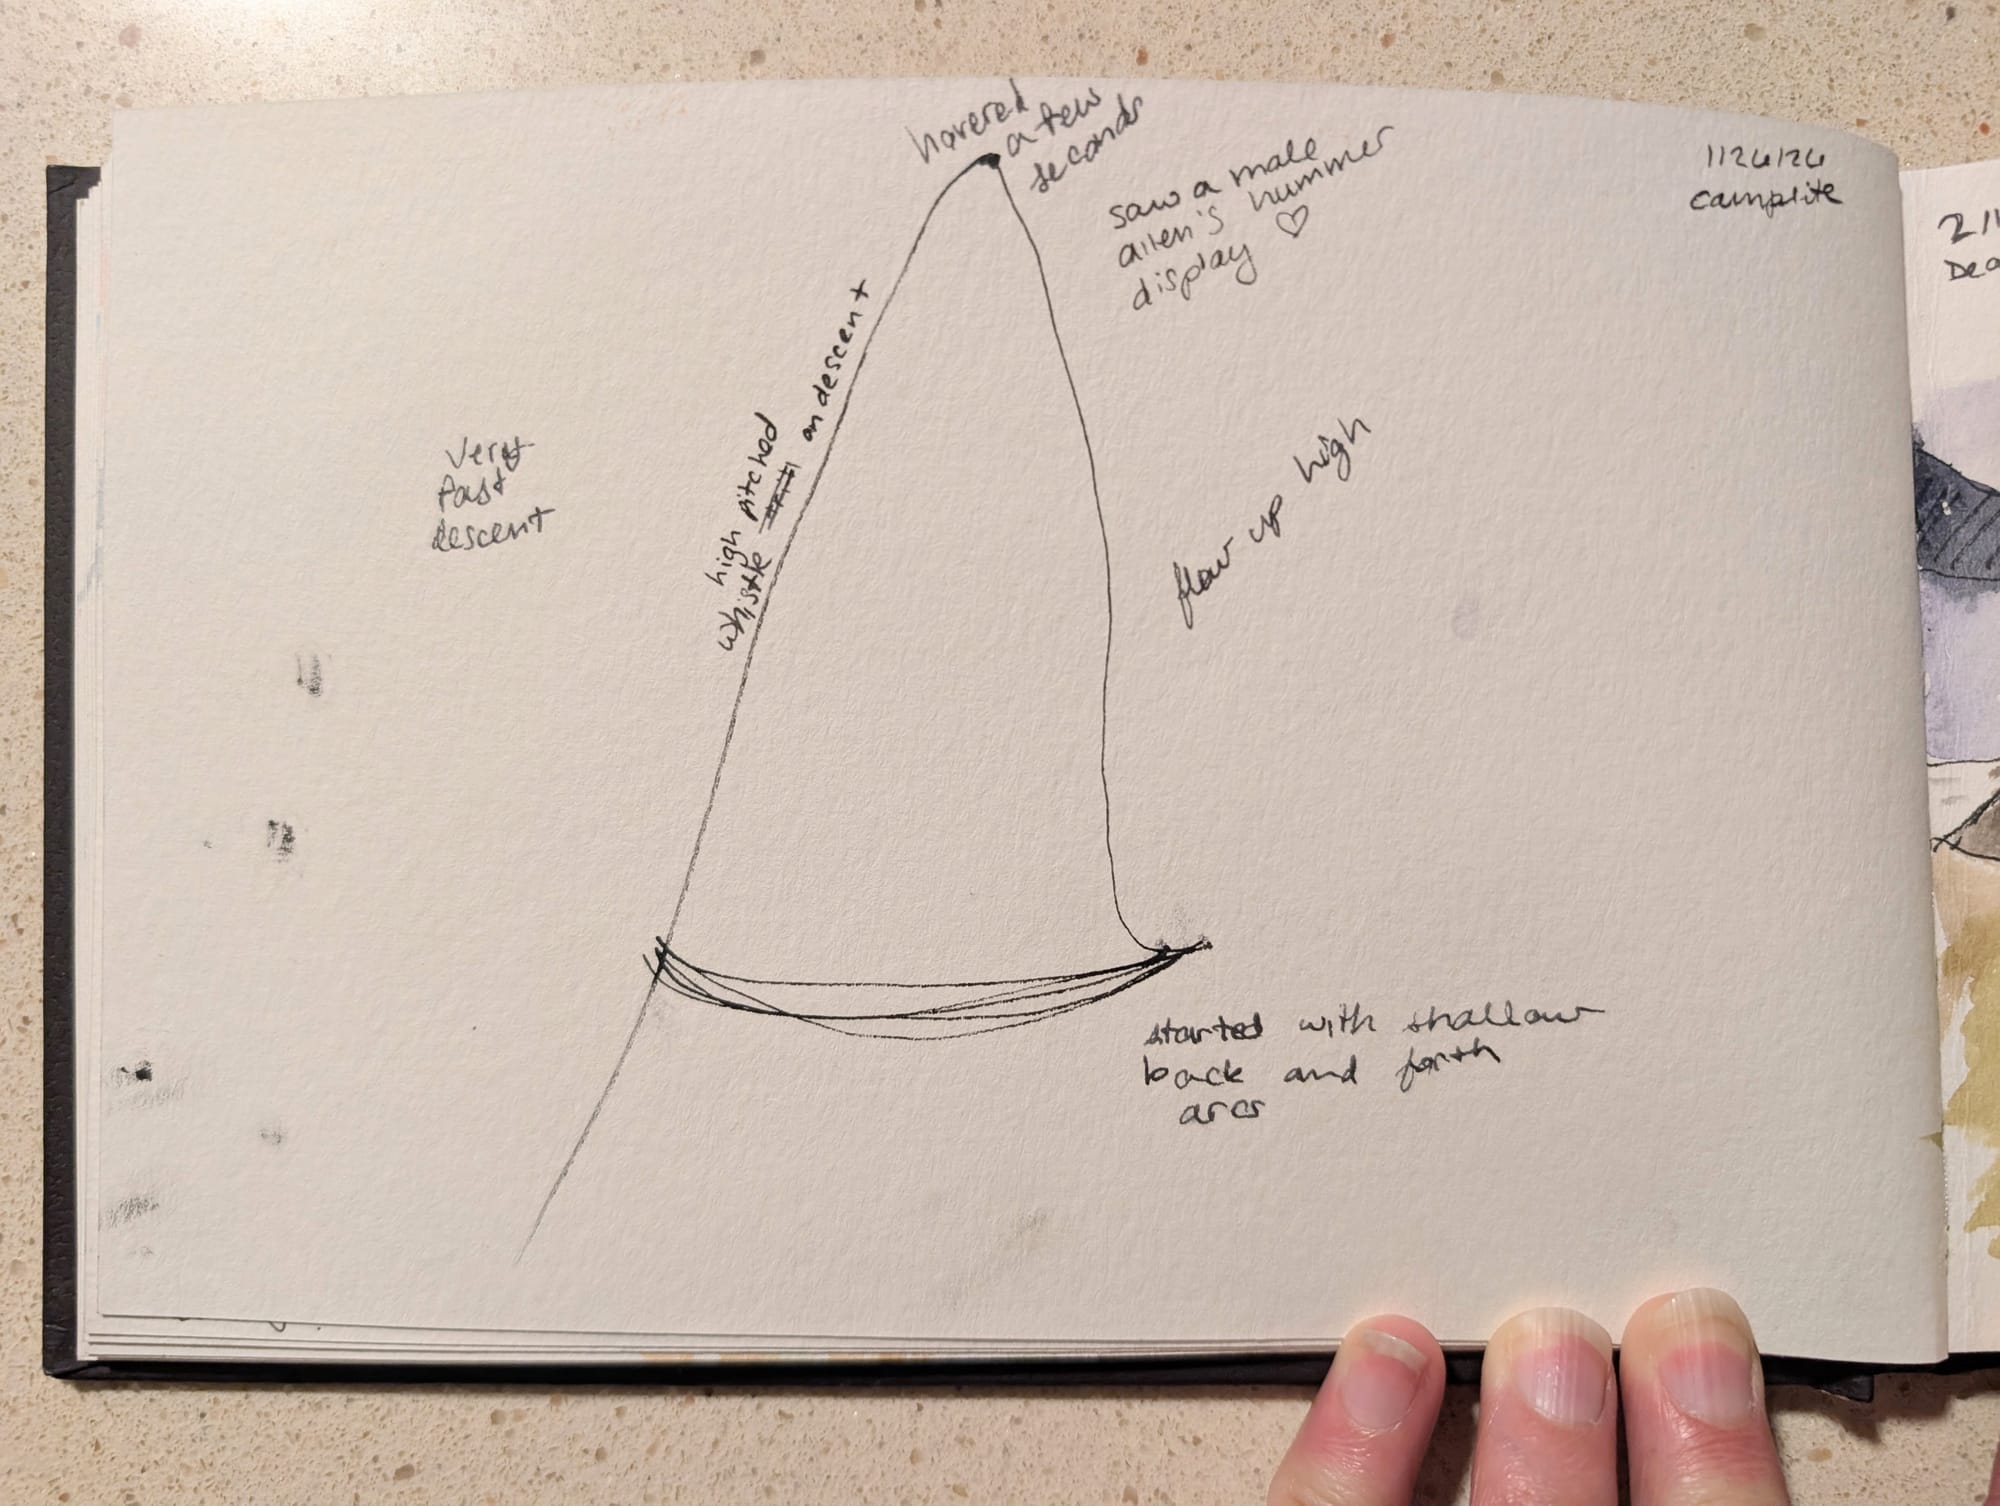 hovered
a few
seconds
saw a male
allen's hummer
display ♡
1/26/26
campsite
high pitched
whistle on descent
very
fast
descent
flew up high
started with shallow
back and forth
arcs